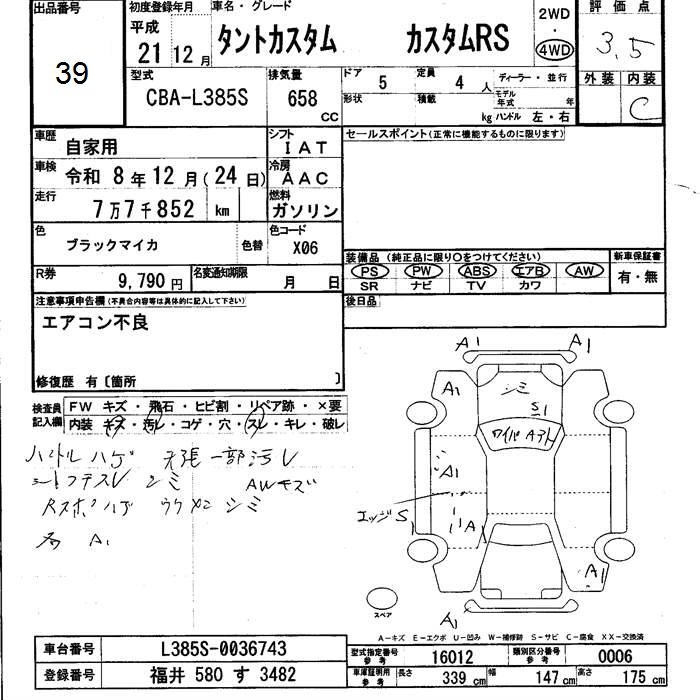 出品番号
39
初度登録年月
平成
21 12 月
車名・グレード
タントカスタム カスタムRS
2WD
・
4WD
評価点
3.5
外装 内装
C
型式
CBA-L385S
排気量
658
CC
ドア 5 定員 4 人
形状 積載 kg
ディーラー・並行
モデル年式 年
ハンドル 左・右
車歴 自家用
シフト IAT
車検 令和 8年 12月(24日)
冷房 AAC
走行 7万7千852 km
燃料 ガソリン
色 ブラックマイカ 色替
色コード X06
R券 9,790 円
名変通知期限 月 日
セールスポイント(正常に機能するものに限ります)
装備品 (純正品に限り○をつけてください)
PS PW ABS エアB AW
SR ナビ TV カワ
新車保証書
有・無
後日品
注意事項申告欄(不具合内容等は具体的に記入して下さい)
エアコン不良
修復歴 有〔箇所 〕
検査員記入欄
FW キズ・飛石・ヒビ割・リペア跡・×要
内装 キズ・汚レ・コゲ・穴・スレ・キレ・破レ
ハンドルハゲ 天張一部汚レ
シミ AWキズ
シミ
A1
A1 A1
A1
シミ
S1
ワイパーAアト
A1
エッジS
A1
A1
A1
スペア
A-キズ E-エクボ U-凹み W-補修跡 S-サビ C-腐食 XX-交換済
車台番号 L385S-0036743
登録番号 福井 580 す 3482
型式指定番号 参考 16012
類別区分番号 参考 0006
車庫証明用 参考 長さ 339 cm 幅 147 cm 高さ 175 cm